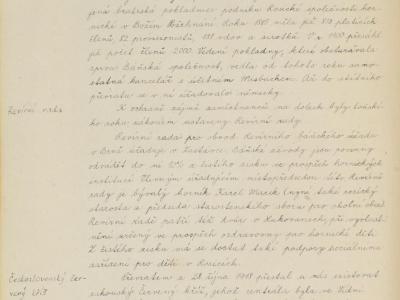 jená bratrská pokladnice podniků Rossické společnosti hor-
nické v Božím Požehnání. Roku 1865 měla již 810 platících
členů, 82 provisionistů, 181 vdov a sirotků. V r. 1900 přesáhl
již počet členů 2000. Vedení pokladny, které obstarávala
správa Báňská společnost, vedla od tohoto roku samo-
statná kancelář s účetním Misbachem. Až do státního
převratu se v ní úřadovalo německy.
Revírní rada
K ochraně zájmů zaměstnanců na dolech byly loňské-
ho roku zákonem ustaveny Revírní rady.
Revírní rada pro obvod Revírního báňského úřadu
v Brně úřaduje v Zastávce. Báňské závody jsou povinny
odvádět do ní 10% z čistého zisku ve prospěch hornických
institucí. Členným úředujícím místopředsedou této Revírní
rady je bývalý horník Karel Marek (nyní také rosický
starosta a předseda starostenského sboru pro okolní obce
Revírní radě patří též dvůr v Kukovanech, při
určený ve prospěch ozdravovny pro hornické děti.
Z čistého zisku má se dostat také podpory sociálnímu
zařízení pro děti v Rosicích.
Československý čer-
vený kříž
Převratem z 28. října 1918 přestal u nás existovat
rakouský Červený kříž, jehož centrála byla ve Vídni